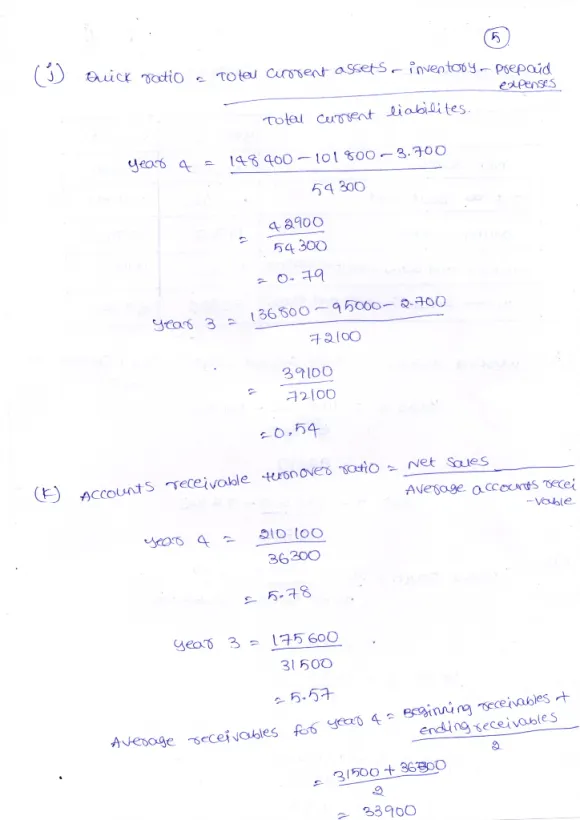 5
(j) Quick ratio = Total current assets - inventory - prepaid expenses
Total current liabilites.
year 4 = 148400 - 101800 - 3.700
54300
= 42900
54300
= 0.79
year 3 = 136800 - 95000 - 2.700
72100
= 39100
72100
= 0.54
(k) Accounts receivable turnover ratio = Net sales
Average accounts recei
-vable
year 4 = 210 100
36300
= 5.78
year 3 = 175600
31500
= 5.57
Average receivables for year 4 = Beginning receivables +
ending receivables
2
= 31500 + 36300
2
= 33900